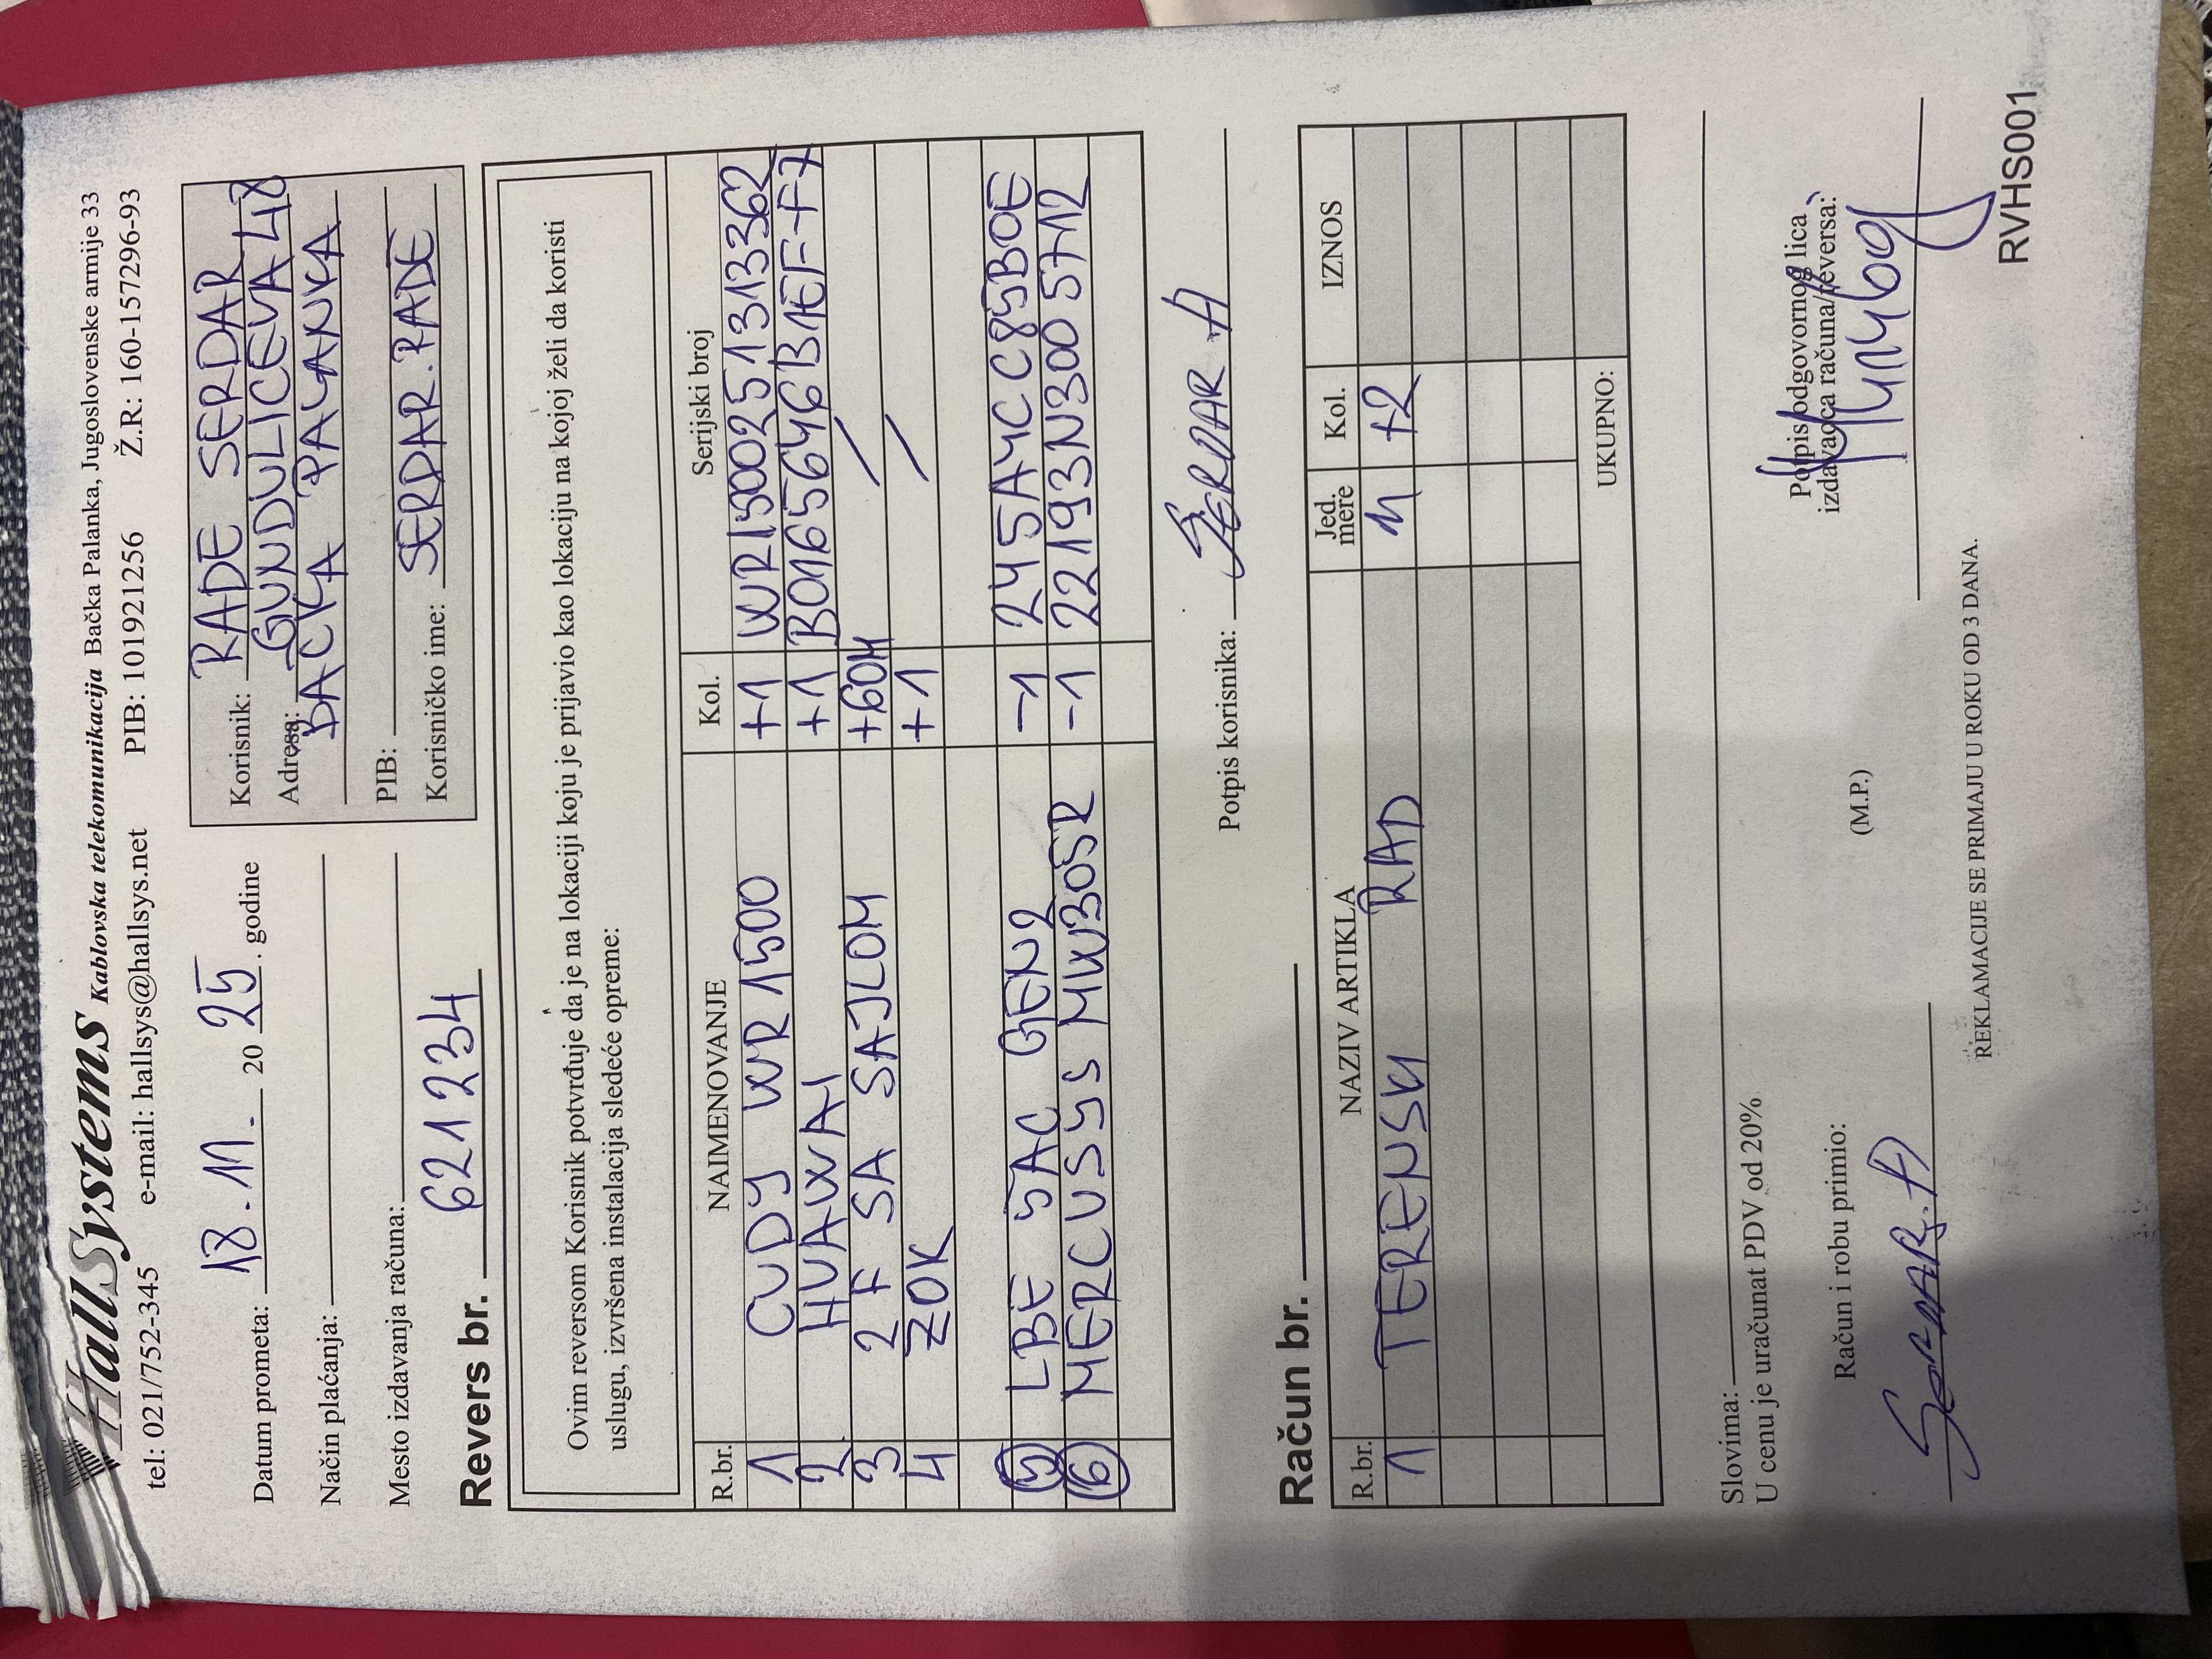 HallSystems Kablovska telekomunikacija Bačka Palanka, Jugoslovenske armije 33
tel: 021/752-345 e-mail: hallsys@hallsys.net PIB: 101921256 Ž.R: 160-157296-93
Datum prometa: 18.11. 20 25. godine
Način plaćanja:
Mesto izdavanja računa:
Korisnik: RADE SERDAR
Adresa: GUNDULICEVA 48
BACKA PALANKA
PIB:
Korisničko ime: SERDAR.RADE
Revers br. 621234
Ovim reversom Korisnik potvrđuje da je na lokaciji koju je prijavio kao lokaciju na kojoj želi da koristi
uslugu, izvršena instalacija sledeće opreme:
R.br. NAIMENOVANJE Kol. Serijski broj
1 CUDY WR1500 +1 WR1500251313362
2 HUAWAI +1 B0165646B1EF-F7
3 2F SA SAJLOM +60M /
4 ZOK +1 /
5 LBE 5AC GEN2 -1 245A4CC85B0E
6 MERCUSYS MW305R -1 22193N3005712
Potpis korisnika: SERDAR A
Račun br.
R.br. NAZIV ARTIKLA Jed. mere Kol. IZNOS
1 TERENSKI RAD +2
UKUPNO:
Slovima:
U cenu je uračunat PDV od 20%
Račun i robu primio:
(M.P.)
Potpis odgovornog lica
izdavaoca računa/reversa:
REKLAMACIJE SE PRIMAJU U ROKU OD 3 DANA.
RVHS001